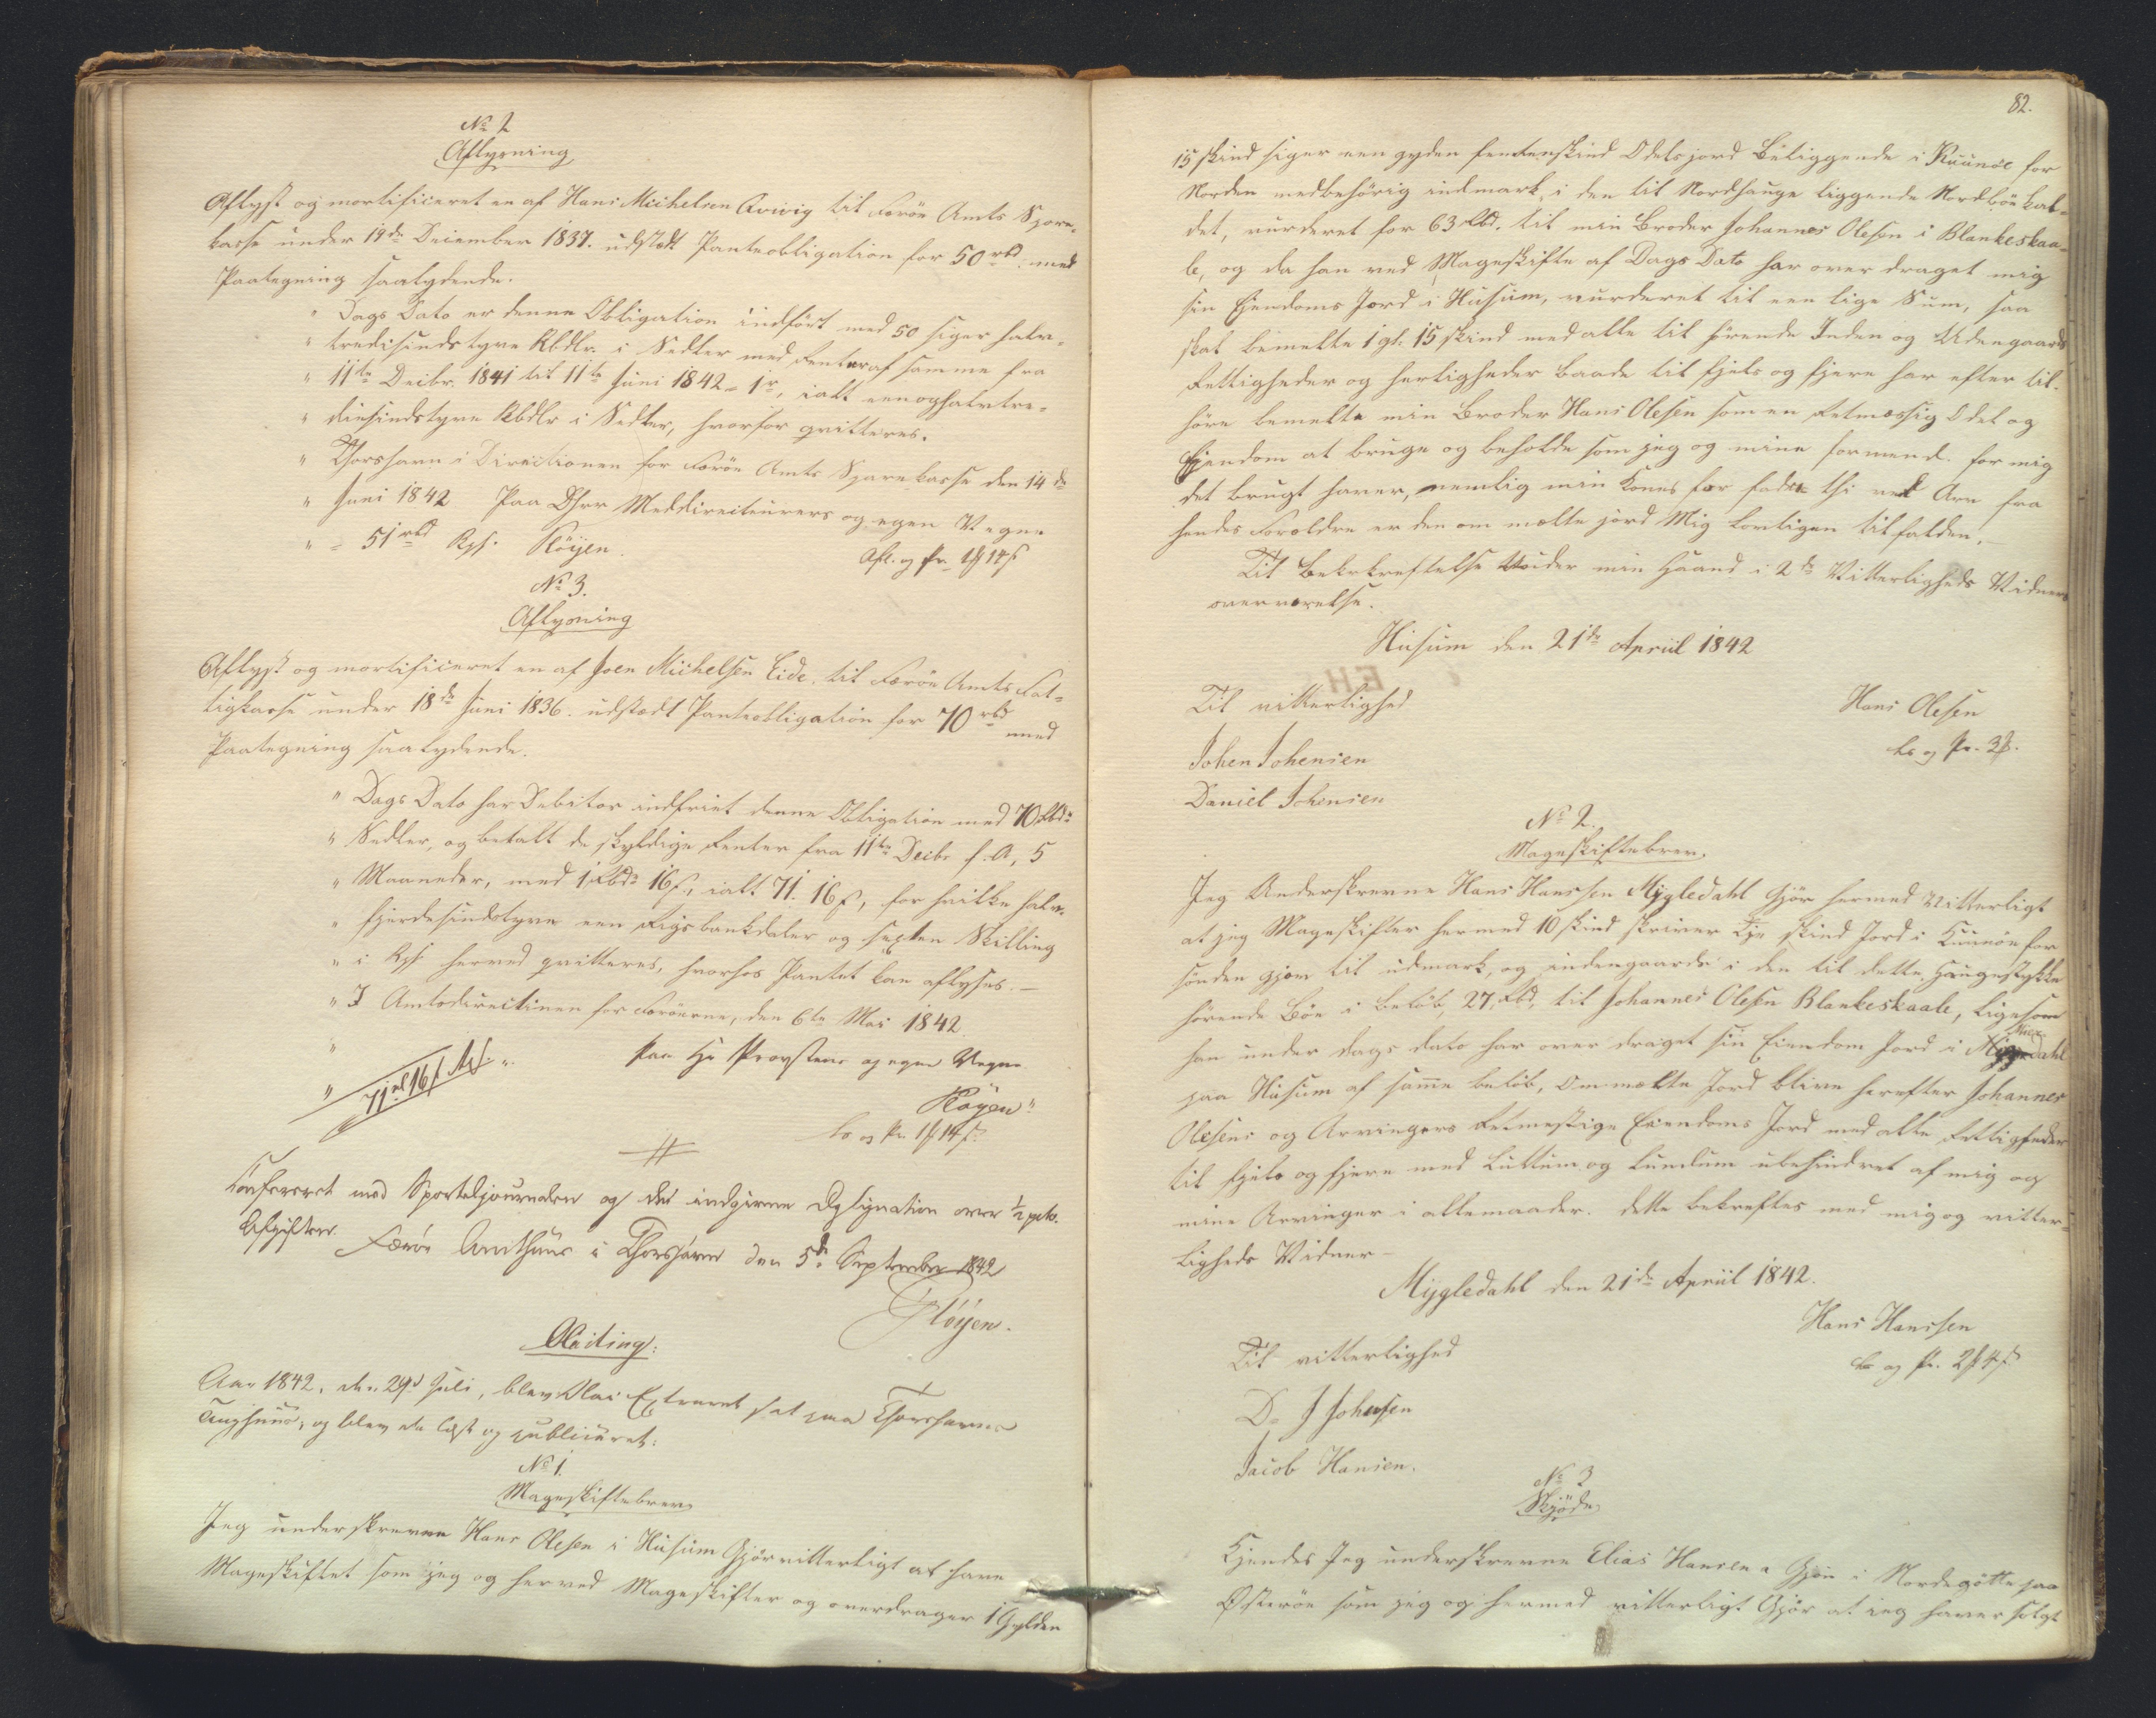 No 2
Aflysning
Aflyst og mortificeret en af Hans Michelsen Qvivig til Færöe Amts Spare-
kasse under 19de December 1837. udstedt Panteobligation for 50 rbd. med
Paategning saalydende.
" Dags Dato er denne Obligation indfriet med 50 siger halv-
" tredisindstyve Rbdlr. i Sedler med Renter af samme fra
" 11te Decbr. 1841 til 11te Juni 1842 = 1 r, ialt een og halvtre-
" diesindstyve Rbdlr i Sedler, hvorfor qvitteres.
" Thorshavn i Directionen for Færöe Amts Sparekasse den 14de
" Juni 1842 Paa Dhrr Meddirecteurers og egen Vegne
" = 51 rbd Rps. Plöyen.
Afl. og Pr. 1 14 s
No 3.
Aflysning
Aflyst og mortificeret en af Joen Michelsen Eide, til Færöe Amts Fat-
tigkasse under 18de Juni 1836. udstædt Panteobligation for 70 rbd med
Paategning saalydende.
" Dags Dato har Debitor indfriet denne Obligation med 70 Rbd:
" Sedler, og betalt de skyldige Renter fra 11te Decbr f. A, 5
" Maaneder, med 1 Rbd: 16 s, ialt 71. 16 s, for hvilke halv-
" fjerdesindstyve een Rigsbankdaler og sexten Skilling
" i Rps herved qvitteres, hvorhos Pantet kan aflyses. —
" I Amtsdirectionen for Færöerne, den 6te Mai 1842
" Paa Hr Provstens og egne Vegne
" 71 rd 16 s Rps. "
Plöyen "
Ls og Pr. 1 14 s
Confereret med Sporteljournalen og den indgivne Designation over ½ pCts.
Afgiften.
Færöe Amthuus i Thorshavn den 5de September 1842
Plöyen.
Olaiting:
Aar 1842, den 29d Juli, blev Olai Extraret sat paa Thorshavns
Tinghuus; og blev da læst og publiceret:
No 1.
Mageskiftebrev
Jeg underskrevne Hans Olesen i Husum Gjör vitterligt at have
Mageskiftet som jeg og herved Mageskifter og overdrager 1 Gylden
82.
15 skind siger een gylden femtenskind Odelsjord beliggende i Kuunöe for
Norden medbehörig indmark, i den til Nordhauge liggende Nordböe kal-
det, vurderet for 63 Rbd. til min Broder Johannes Olesen i Blankeskaa-
le, og da han ved Mageskifte af Dags Dato har over draget mig
sin Ejendoms Jord i Husum, vurderet til een lige Sum, saa
skal bemelte 1 gl. 15 skind med alle til hörende Inden og Udengaards
Rettigheder og herligheder baade til fjels og fjere her efter til-
höre bemelte min Broder Hans Olesen som en Retmæssig Odel og
Ejendom at bruge og beholde som jeg og mine formænd. for mig
det brugt haver, nemlig min Kones for fædre thi ved Arv fra
hendes Foreldre er den om mælte jord Mig lovligen tilfalden. —
Til Bekekreftelse under min Haand i 2de Vitterligheds Vidners
overværelse.
Husum den 21de Apriil 1842
Til vitterlighed
Hans Olesen
Ls og Pr. 3
Johen Johensen
Daniel Johensen
No 2.
Mageskiftebrev.
Jeg Underskrevne Hans Hanssen Mygledahl Gjör hermed Vitterligt
at jeg Mageskifter hermed 10 skind skriver Tje skind Jord i Kuunöe for
sönden gjem til udmark, og indengaards i den til dette Haugestykke
hörende Böe i belöb, 27 Rbd, til Johannes Olesen Blankeskaale, ligesom
han under dags dato har over draget sin Eiendom Jord i dahl
paa Husum af samme belöb, Ommælte Jord blive herefter Johannes
Olesens og Arvingers Retmessige Eiendoms Jord med alle Rettigheder
til fjels og fjere med Luttum og Lundum ubehindret af mig og
mine Arvinger i allemaader. dette bekreftes med mig og vitter-
ligheds Vidner —
Mygledahl den 21de Apriil 1842.
Hans Hanssen
Ls og Pr. 2 4 s
Til vitterlighed
D. J Johensen
Jacob Hansen.
No 3
Skjöde
Kjendes Jeg underskrevne Elias Hansen a Gjöu i Nordregötte paa
Österöe som jeg og hermed vitterligt Gjör at jeg haver solgt